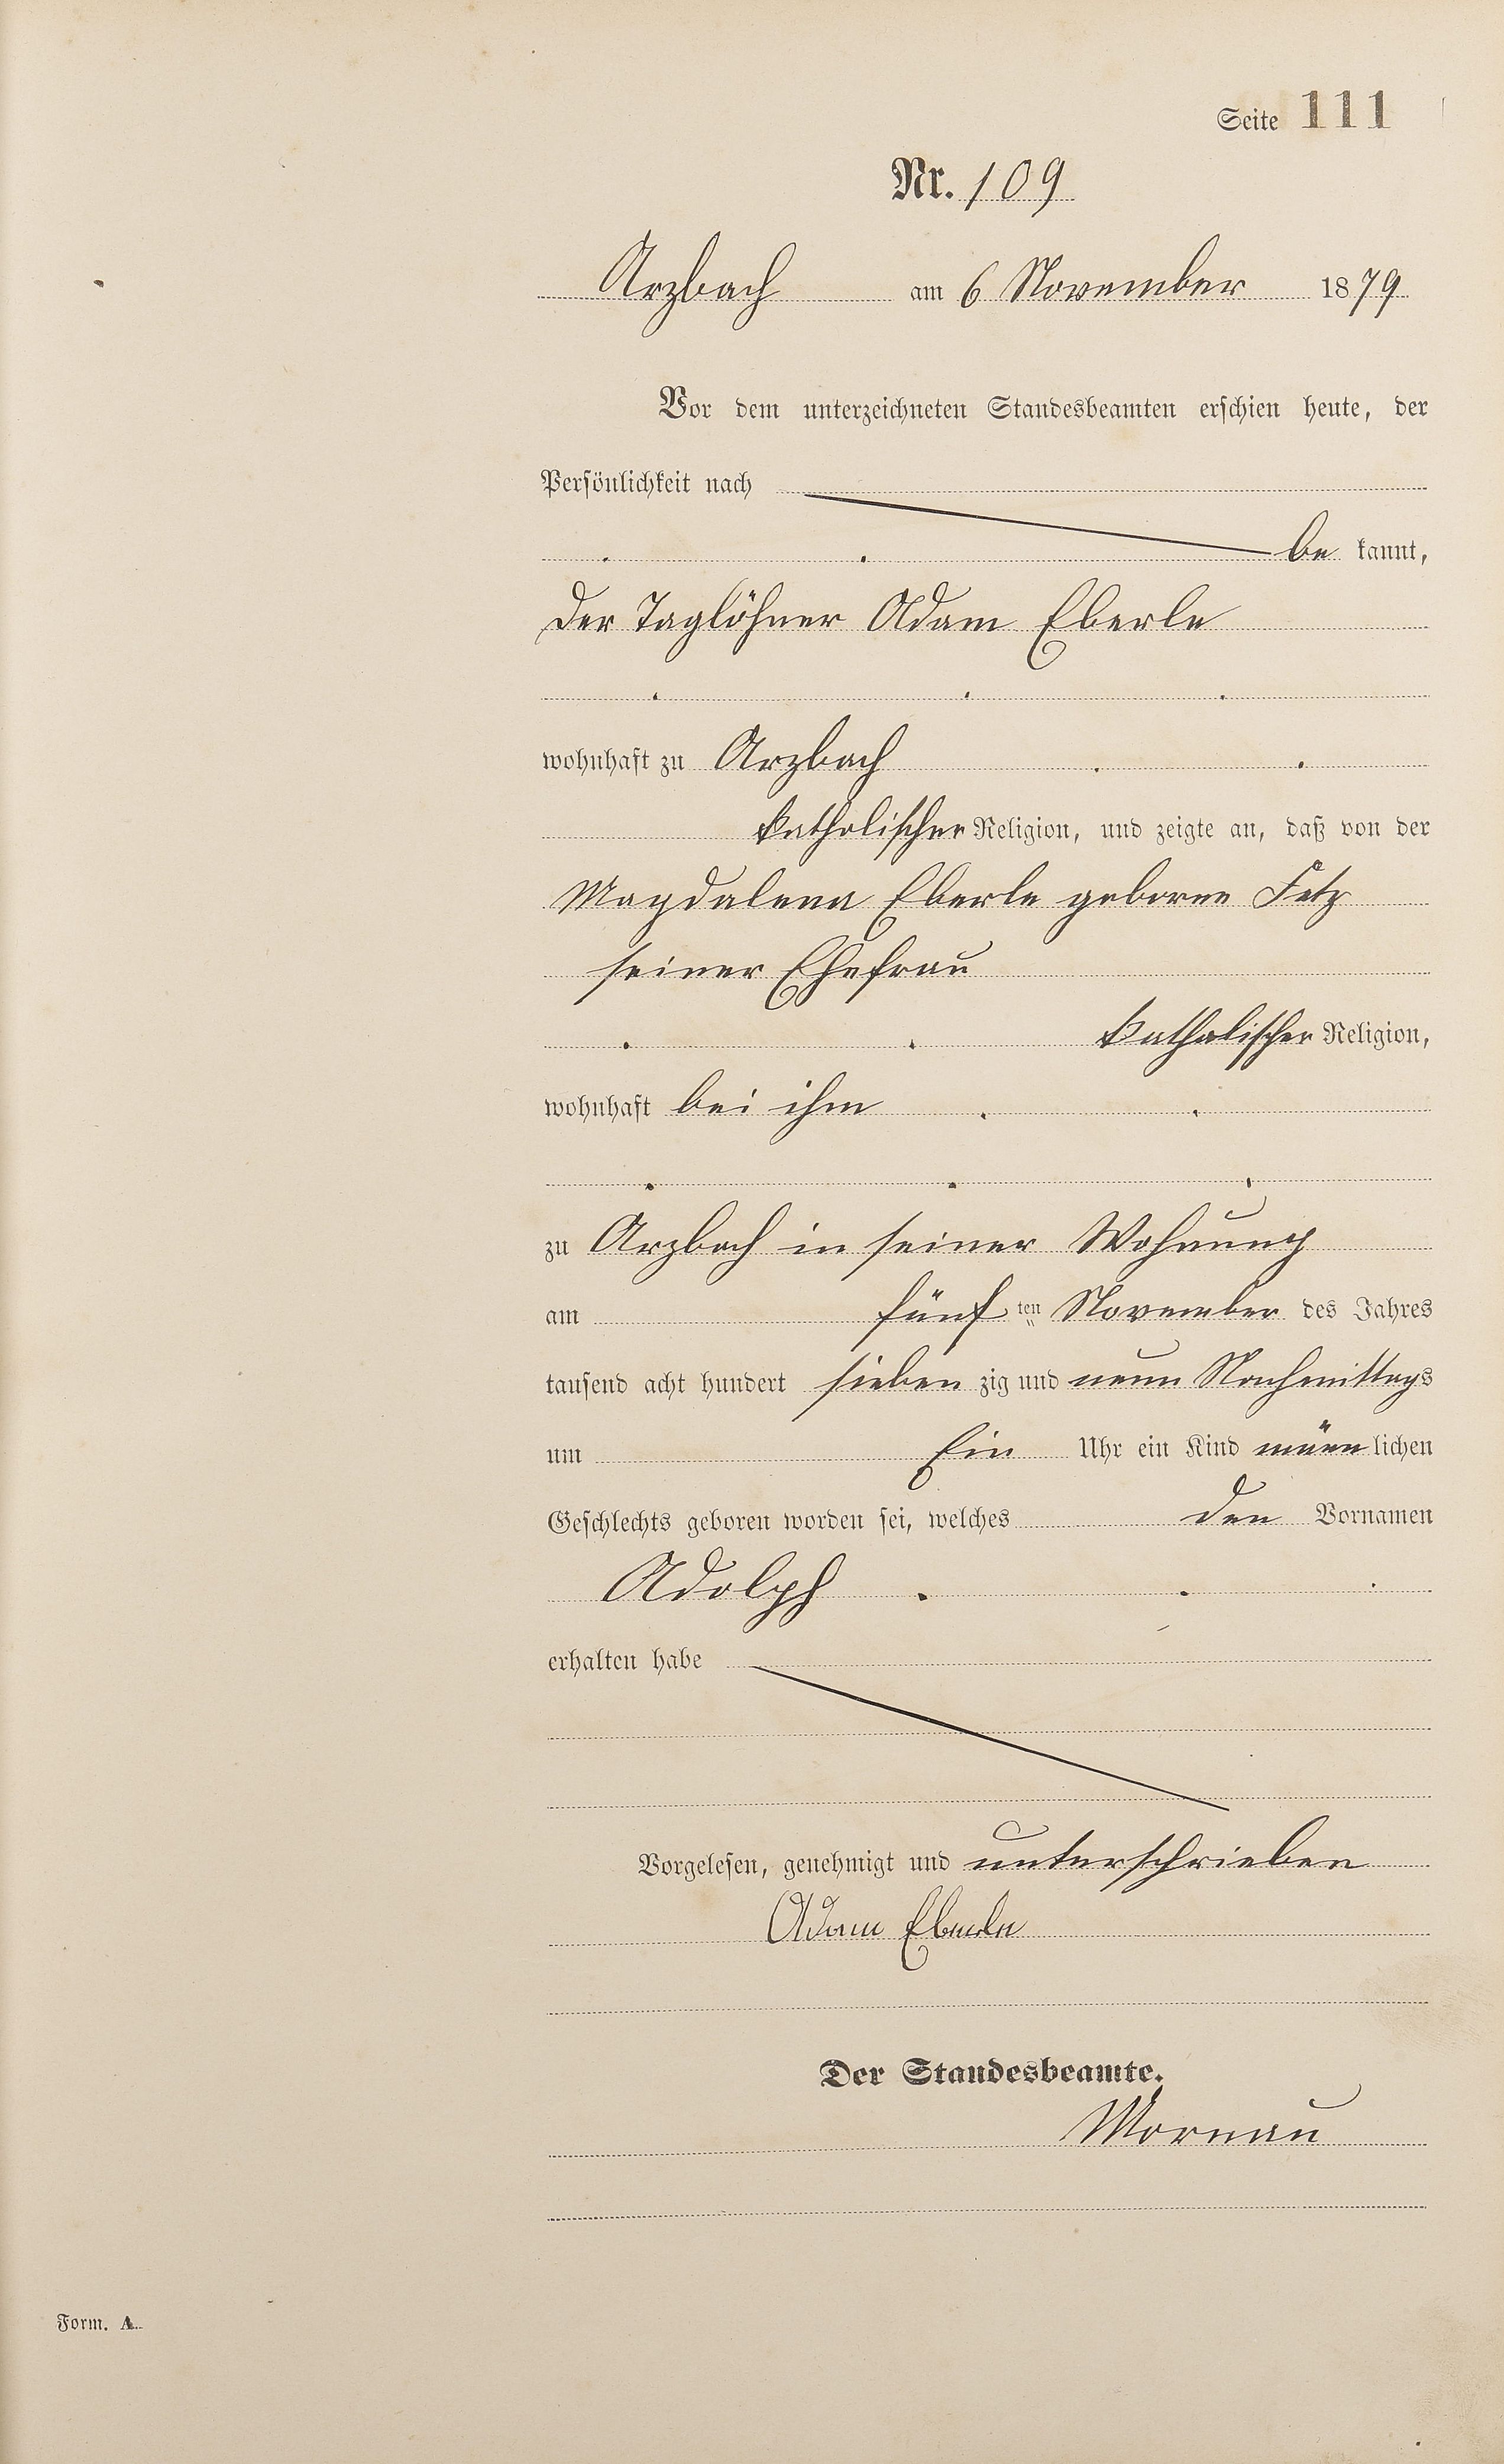 Seite 111
Nr. 109
Arzbach am 6 November 1879
Vor dem unterzeichneten Standesbeamten erschien heute, der
Persönlichkeit nach
be kannt,
der Taglöhner Adam Eberle
wohnhaft zu Arzbach
katholischer Religion, und zeigte an, daß von der
Magdalena Eberle geborne Fetz
seiner Ehefrau
katholischer Religion,
wohnhaft bei ihm
zu Arzbach in seiner Wohnung
am fünf ten November des Jahres
tausend acht hundert sieben zig und neun Nachmittags
um Ein Uhr ein Kind männ lichen
Geschlechts geboren worden sei, welches den Vornamen
Adolph
erhalten habe
Vorgelesen, genehmigt und unterschrieben
Adam Eberle
Der Standesbeamte.
Mornau
Form. A.